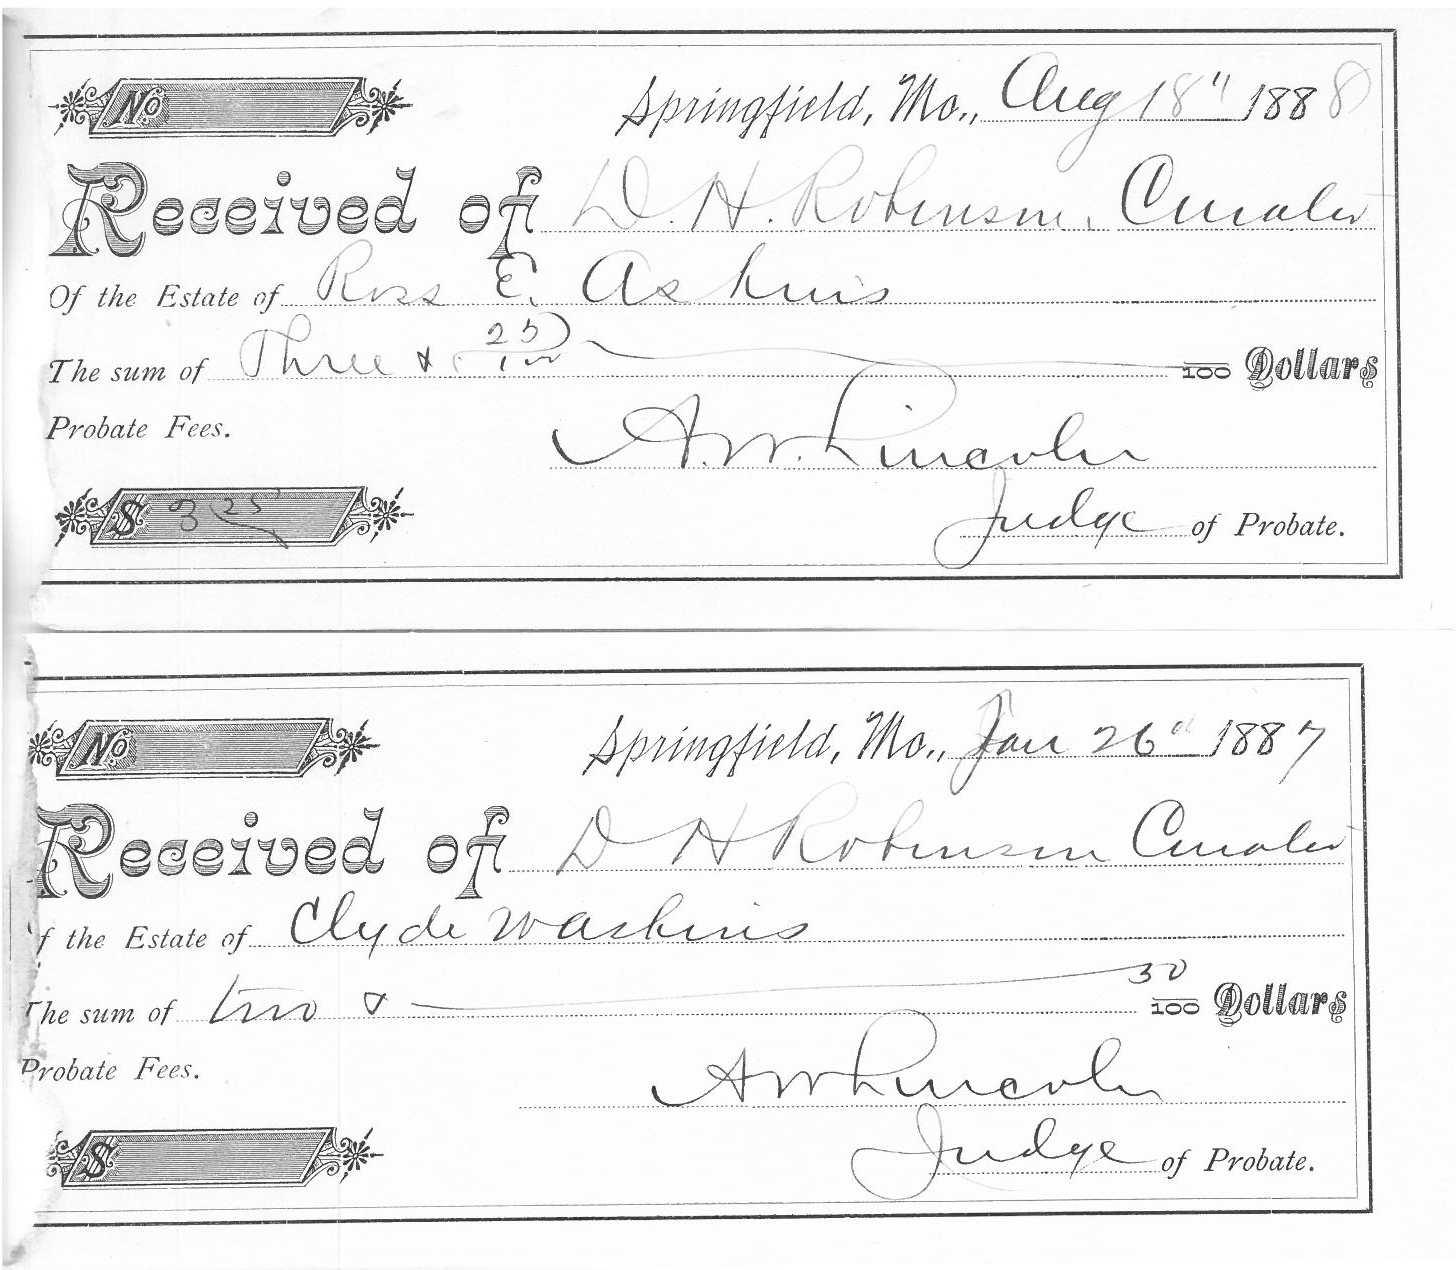 No
Springfield, Mo., Aug 18" 1888
Received of D. H. Robinson, Curator
Of the Estate of Ross E. Askins
The sum of Three & 25/100 /100 Dollars
Probate Fees.
A. W. Lincoln
$ 3 25
Judge of Probate.
No
Springfield, Mo., Jan 26" 1887
Received of D H Robinson Curator
f the Estate of Clyde Waskins
The sum of two & 30/100 Dollars
Probate Fees.
A W Lincoln
$
Judge of Probate.